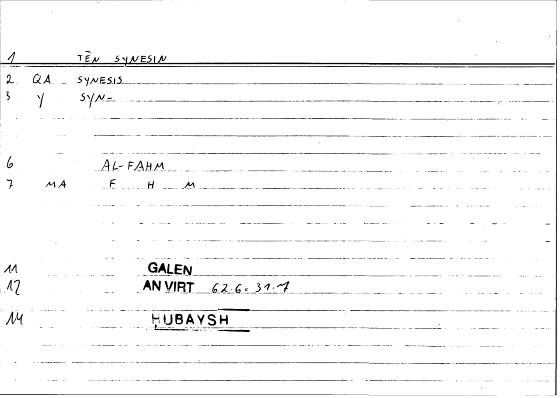 1 TĒN SYNESIN
2 QA SYNESIS
3 Y SYN-
6 AL-FAHM
7 MA F H M
11 GALEN
12 AN VIRT 62.6. 31.7
14 HUBAYSH